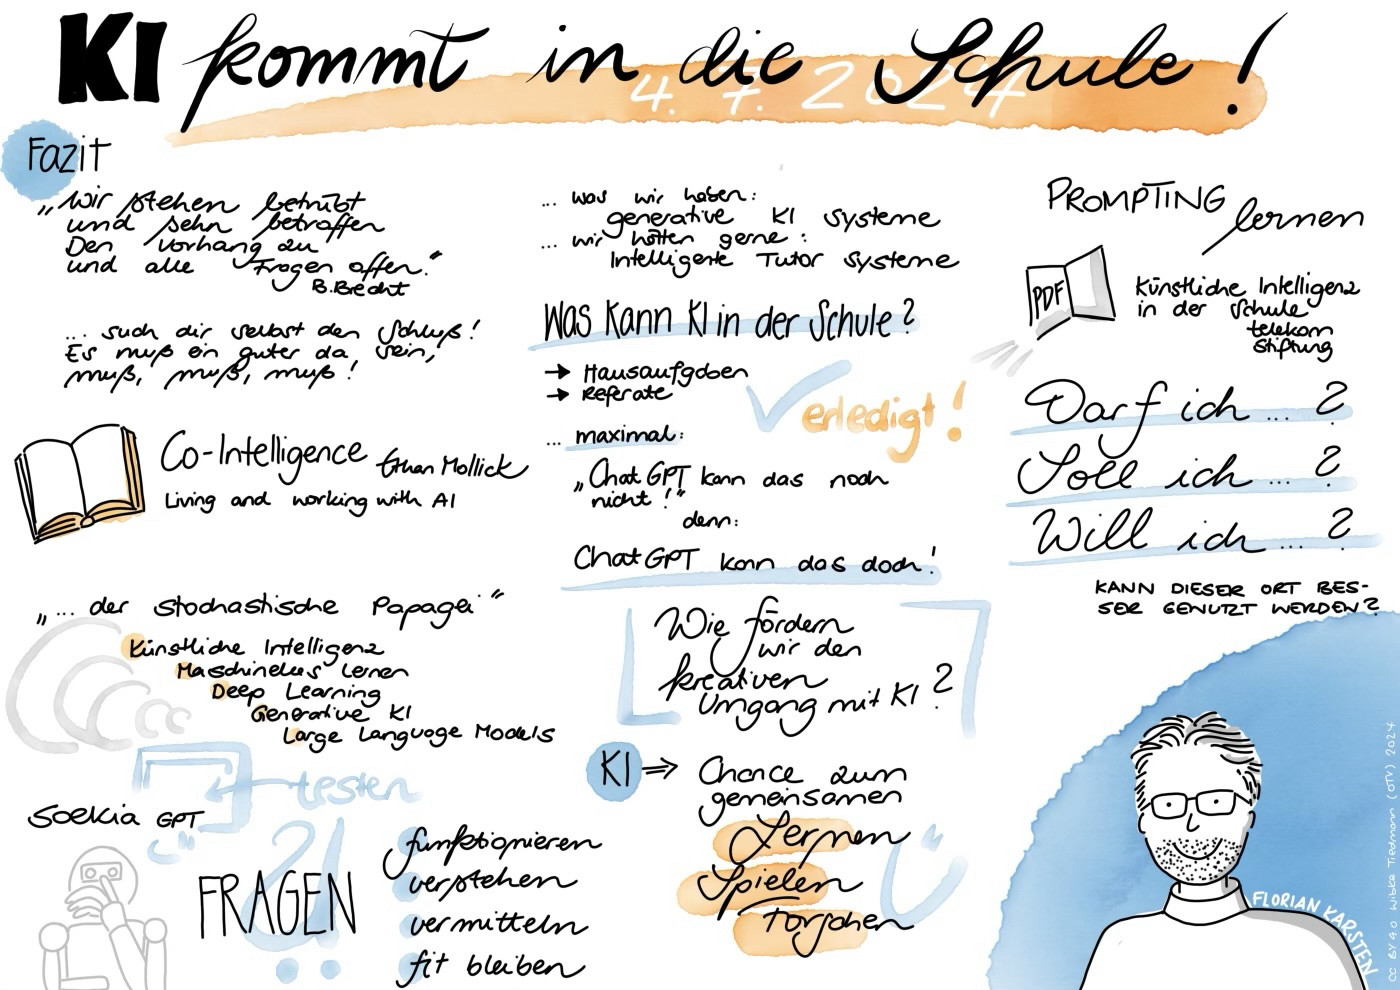 KI kommt in die Schule!
4. 7. 2024
Fazit
„Wir stehen betrübt
und sehn betroffen
Den Vorhang zu
und alle Fragen offen."
B. Brecht
... such dir selbst den Schluß!
Es muß ein guter da, sein,
muß, muß, muß!
Co-Intelligence Ethan Mollick
Living and working with AI
„... der stochastische Papagei"
Künstliche Intelligenz
Maschinelles Lernen
Deep Learning
Generative KI
Large Language Models
testen
Soekia GPT
FRAGEN
funktionieren
verstehen
vermitteln
fit bleiben
... was wir haben:
generative KI Systeme
... wir hätten gerne:
Intelligente Tutor Systeme
Was kann KI in der Schule?
→ Hausaufgaben
→ Referate
erledigt!
... maximal:
„ChatGPT kann das noch
nicht!"
denn:
ChatGPT kann das doch!
Wie fördern
wir den
kreativen
Umgang mit KI?
KI ⇒ Chance zum
gemeinsamen
Lernen
Spielen
Forschen
PROMPTING
lernen
PDF
Künstliche Intelligenz
in der Schule
telekom
Stiftung
Darf ich ... ?
Soll ich ... ?
Will ich ... ?
KANN DIESER ORT BES-
SER GENUTZT WERDEN?
FLORIAN KARSTEN
CC BY 4.0 Wibke Tiedmann (OTV) 2024